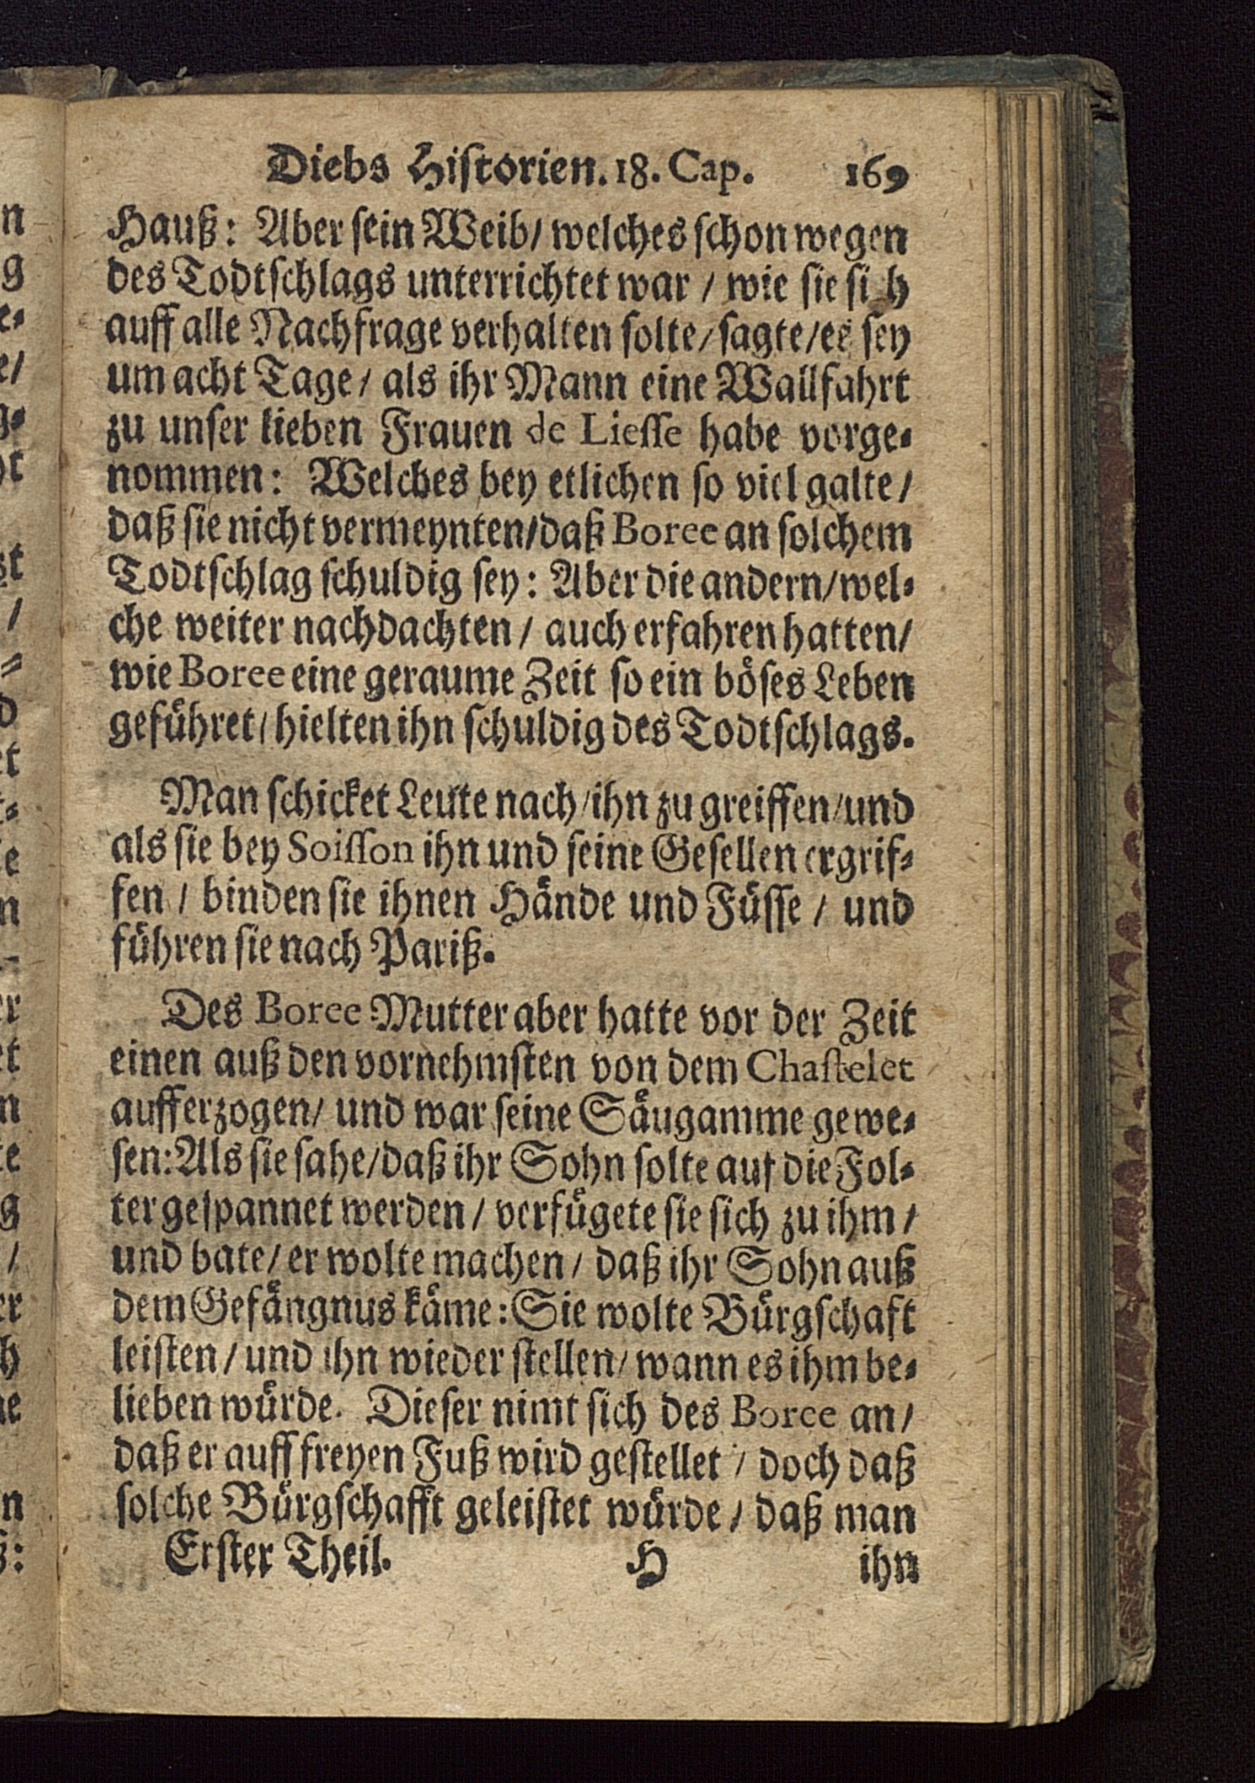 Diebs Historien. 18. Cap. 169
Hauß: Aber sein Weib/ welches schon wegen
des Todtschlags unterrichtet war / wie sie sich
auff alle Nachfrage verhalten solte/ sagte/ es sey
um acht Tage/ als ihr Mann eine Wallfahrt
zu unser lieben Frauen de Liesse habe vorge-
nommen: Welches bey etlichen so viel galte/
daß sie nicht vermeynten/ daß Boree an solchem
Todtschlag schuldig sey: Aber die andern/ wel-
che weiter nachdachten / auch erfahren hatten/
wie Boree eine geraume Zeit so ein böses Leben
geführet/ hielten ihn schuldig des Todtschlags.
Man schicket Leute nach/ ihn zu greiffen/ und
als sie bey Soisson ihn und seine Gesellen ergrif-
fen / binden sie ihnen Hände und Füsse / und
führen sie nach Pariß.
Des Boree Mutter aber hatte vor der Zeit
einen auß den vornehmsten von dem Chastelet
aufferzogen/ und war seine Säugamme gewe-
sen: Als sie sahe/ daß ihr Sohn solte auf die Fol-
ter gespannet werden / verfügete sie sich zu ihm /
und bate/ er wolte machen / daß ihr Sohn auß
dem Gefängnus käme: Sie wolte Bürgschaft
leisten / und ihn wieder stellen/ wann es ihm be-
lieben würde. Dieser nimt sich des Boree an/
daß er auff freyen Fuß wird gestellet / doch daß
solche Bürgschafft geleistet würde / daß man
Erster Theil. H ihn